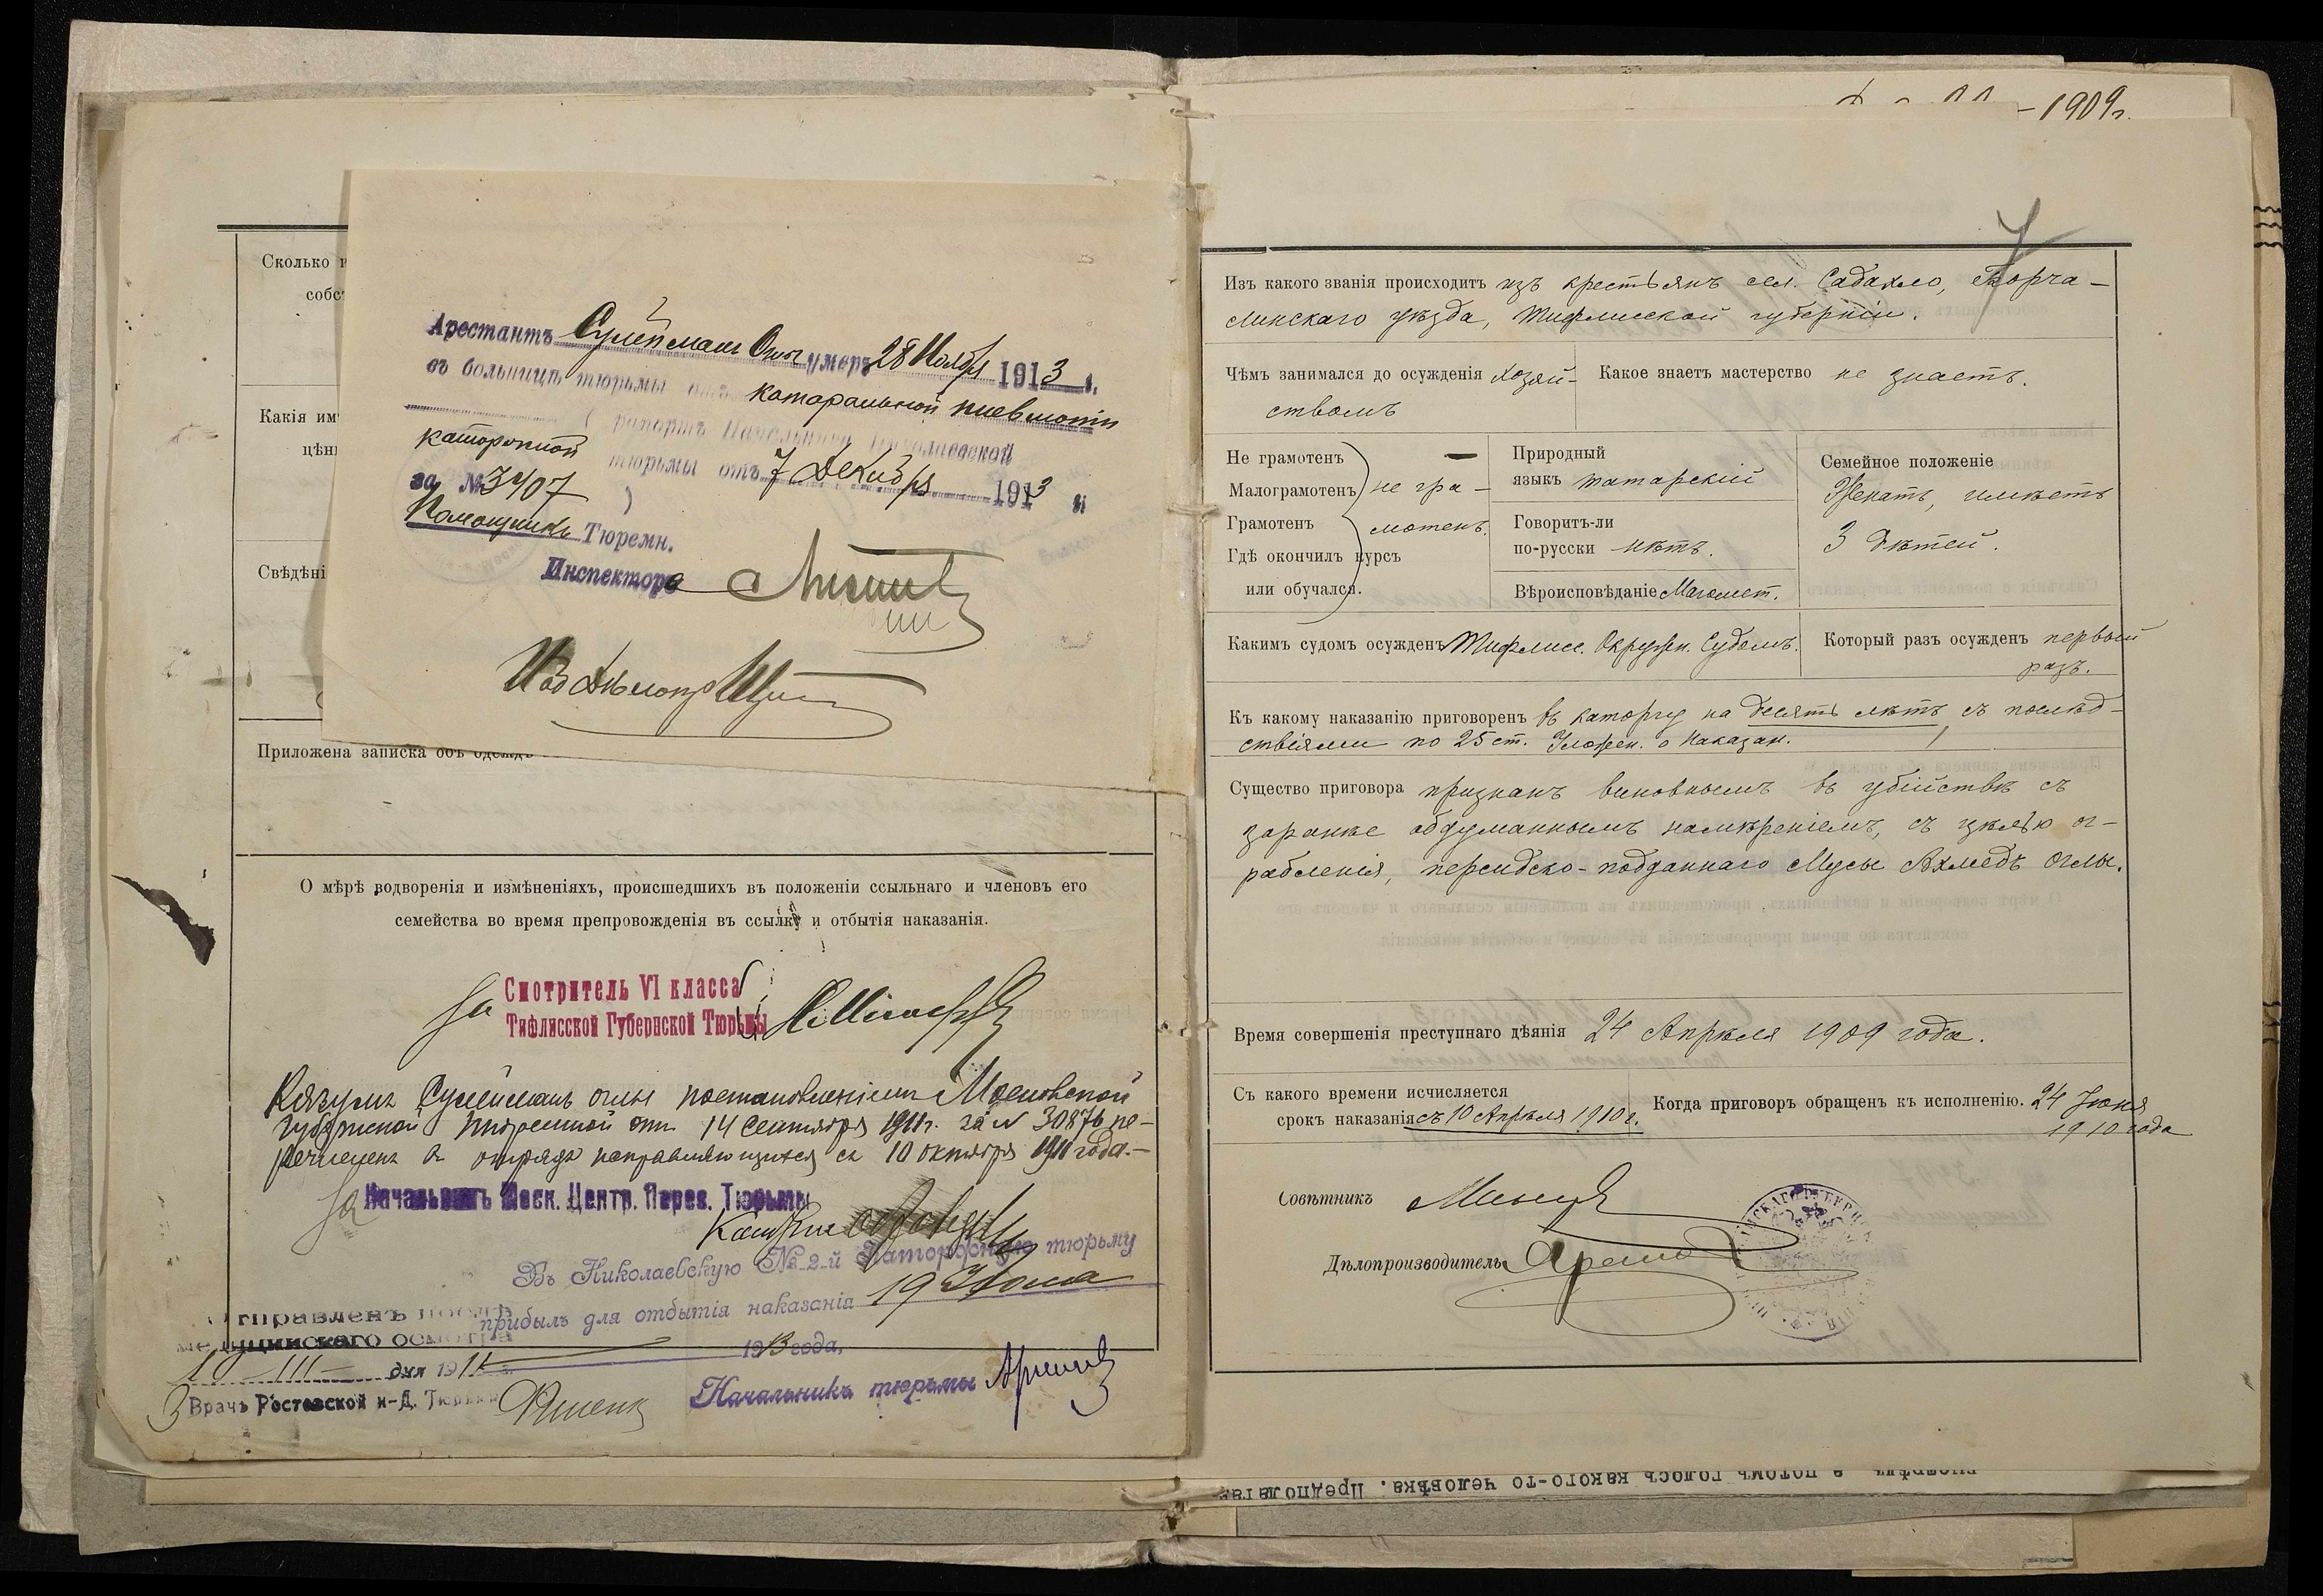 Сколько
собст
Какія им
цѣн
Свѣдѣні
Арестантъ Сулейманъ Оглы умеръ 28 Ноября 1913 г.
въ больницѣ тюрьмы отъ катаральной пневмоніи
( рапортъ Начальника Николаевской
каторжной тюрьмы отъ 7 Декабря 1913 г.
за № 3407 )
Помощникъ Тюремн.
Инспектора
Приложена записка объ одеждѣ
О мѣрѣ водворенія и измѣненіяхъ, происшедшихъ въ положеніи ссыльнаго и членовъ его
семейства во время препровожденія въ ссылку и отбытія наказанія.
За Смотритель VI класса
Тифлисской Губернской Тюрьмы
Кязумъ Сулейманъ оглы постановленіемъ Московской
Губернской Тюремной отъ 14 Сентября 1911 г. за № 30876 пе-
речисленъ въ отрядъ исправляющихся съ 10 октября 1911 года.-
За Начальникъ Моск. Центр. Перес. Тюрьмы
Въ Николаевскую № 2-й Каторжную тюрьму
прибылъ для отбытія наказанія 19 Іюня
1913 года,
Начальникъ тюрьмы
Отправленъ послѣ
медицинскаго осмотра
дня 191
Врачъ Ростовской н-Д. Тюрьмы
-1909 г.
7
Изъ какого званія происходитъ изъ крестьянъ сел. Садахло, Борча-
линскаго уѣзда, Тифлисской губерніи.
Чѣмъ занимался до осужденія хозяй-
ствомъ
Какое знаетъ мастерство не знаетъ.
Не грамотенъ —
Малограмотенъ не гра-
Грамотенъ мотенъ.
Гдѣ окончилъ курсъ
или обучался.
Природный
языкъ татарскій
Говоритъ-ли
по-русски нѣтъ.
Вѣроисповѣданіе Магомет.
Семейное положеніе
Женатъ, имѣетъ
3 дѣтей.
Какимъ судомъ осужденъ Тифлисс. Окружн. Судомъ.
Который разъ осужденъ первый
разъ.
Къ какому наказанію приговоренъ въ каторгу на десять лѣтъ съ послѣд-
ствіями по 25 ст. Уложен. о Наказан.
Существо приговора признанъ виновнымъ въ убійствѣ съ
заранѣе обдуманнымъ намѣреніемъ, съ цѣлью ог-
рабленія, персидско-подданнаго Мусы Ахмедъ Оглы.
Время совершенія преступнаго дѣянія 24 Апрѣля 1909 года.
Съ какого времени исчисляется
срокъ наказанія съ 10 Апрѣля 1910 г.
Когда приговоръ обращенъ къ исполненію. 24 Іюня
1910 года
Совѣтникъ
Дѣлопроизводитель
а потомъ голосъ какого-то человѣка. Предполагая